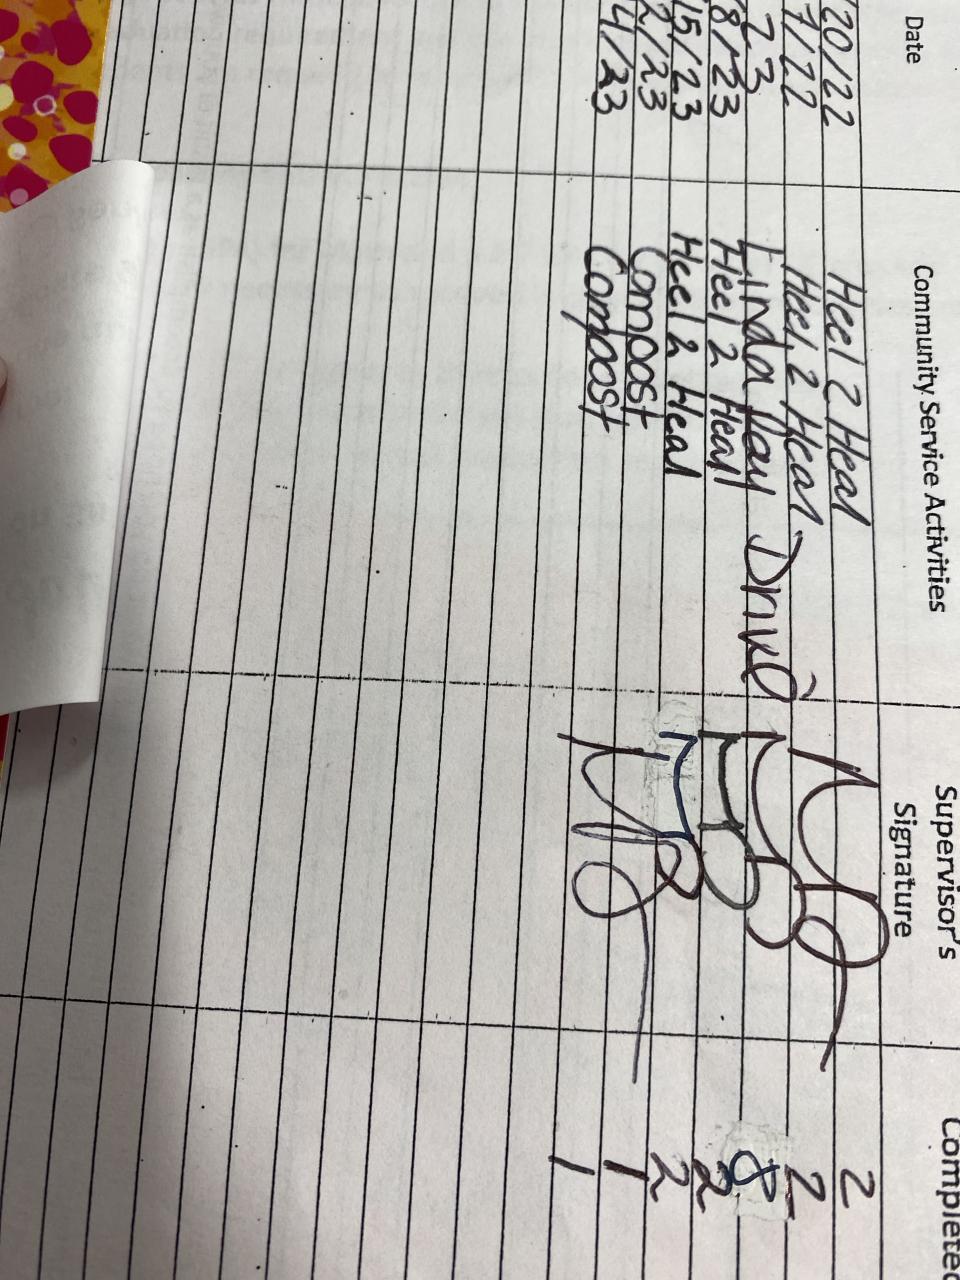 Date Community Service Activities Supervisor's Signature Completed
/20/22 Heel 2 Heal 2
7/22 Heel 2 Heal 2
23 Linda Hay Drive 8
8/23 Heel 2 Heal 2
15/23 Heel 2 Heal 2
/23 Compost 1
4/23 Compost 1